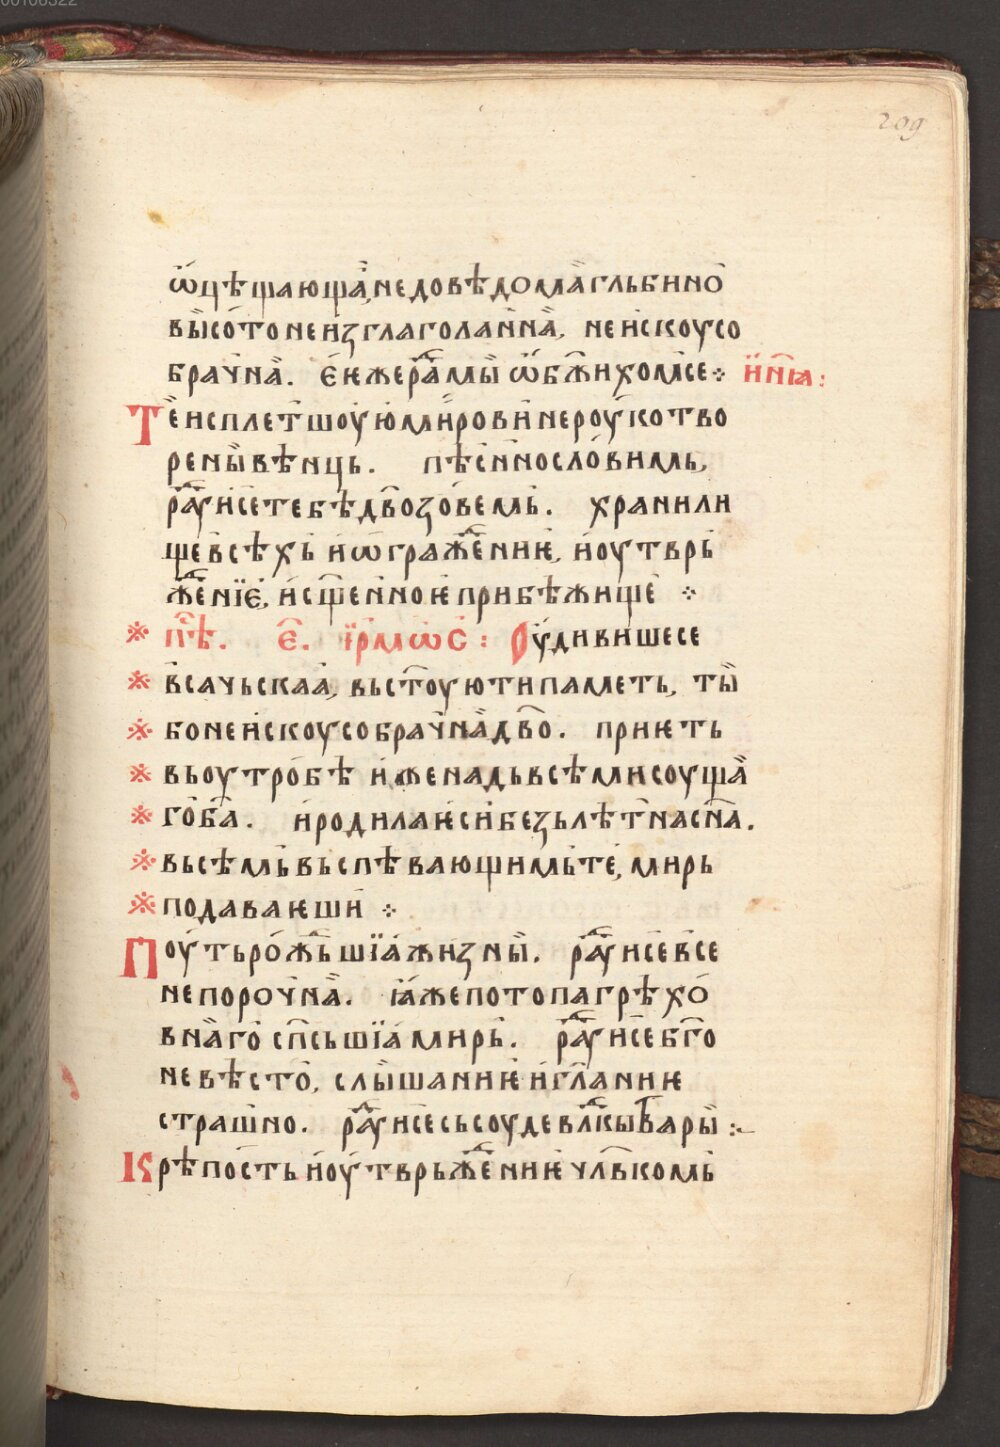 00108322
209
ѿцѣщающаꙗ, недовѣдомаа гльбино
высото неизглаголаннаа, неискоусо
брачнаа. ѥюже радꙋемы ѡбожихомсе ⁘ инїа:
Тѣ исплетшоую мирови нероукотво
рены вѣньць. пѣснинословимь,
радꙋисе тебѣ дво зовемь. хранили
ще всѣхь и ѡгражⷣениѥ, и оутврь
жⷣенїе, и сщенноѥ прибѣжище ⁘
※ пѣ. є. їрмѡс: Оудивишесе
※ всачьскаа, вьстоую ти паметь, ты
※ бо неискоусобрачнаа дво. приѥть
※ вь оутробѣ иже надь всѣми соущаа
※ го ба. и родила ѥси безьлѣтна сна.
※ вьсѣмь вьспѣвающимь те, мирь
※ подаваѥши ⁘
Поуть рожⷣьшїа жизны. радꙋисе все
непорочнаа. ꙗже потопа грѣхо
внаго спсьшїа мирь. радꙋисе бго
невѣсто, слышаниѥ и гланиѥ
страшно. радꙋисе сьсоуде влкы твары :~
Крѣпость и оутврьжⷣениѥ члвкомь